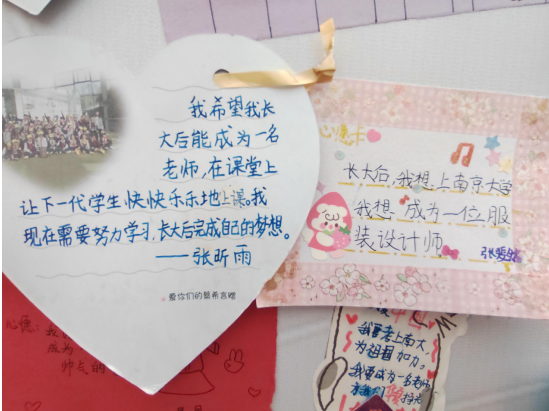 我希望我长
大后能成为一名
老师,在课堂上
让下一代学生快快乐乐地上课。我
现在需要努力学习,长大后完成自己的梦想。
——张昕雨
心愿卡
长大后,我想上南京大学
我想成为一位服
装设计师
心愿:
成为
我要考上南大
为祖国加力。
我要成为一名老师